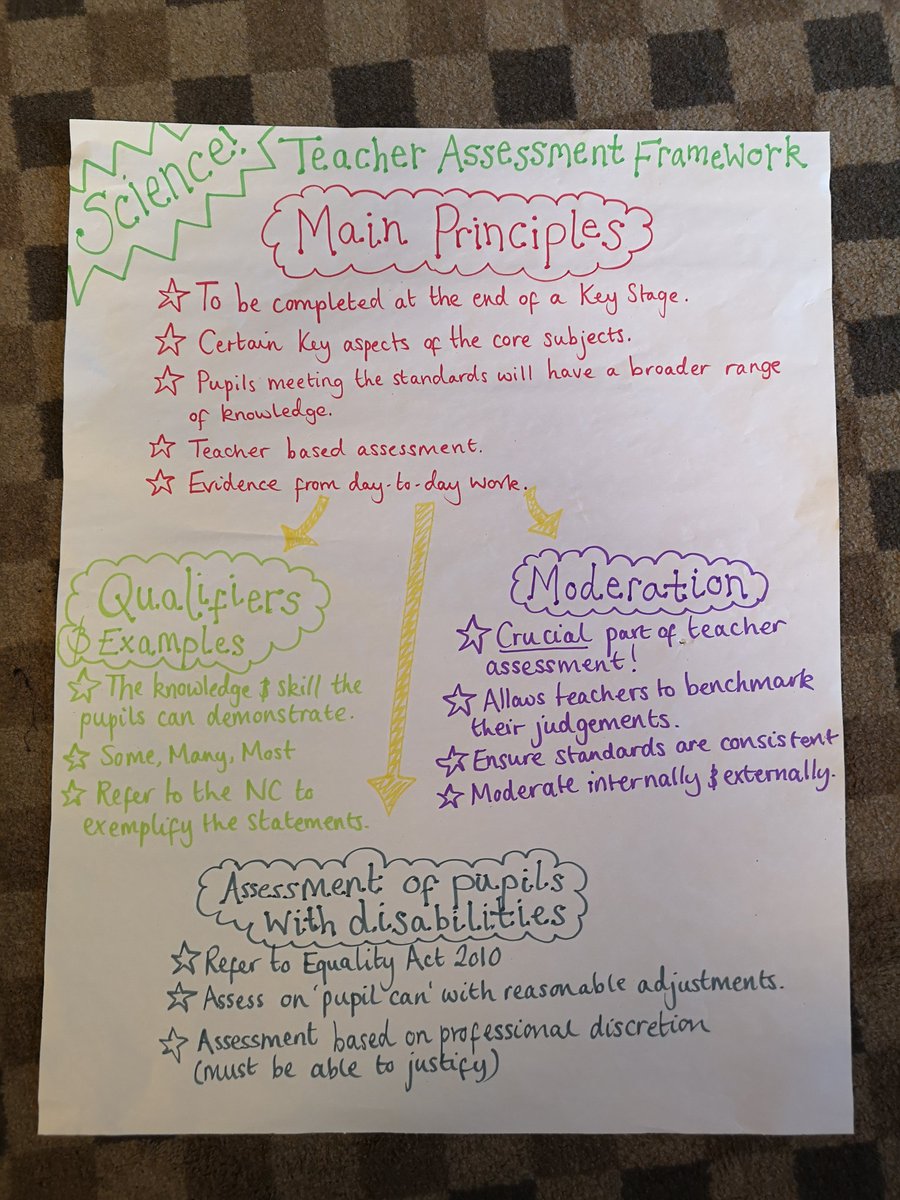 Science!
Teacher Assessment Framework
Main Principles
☆ To be completed at the end of a Key Stage.
☆ Certain Key aspects of the core subjects.
☆ Pupils meeting the standards will have a broader range
of knowledge.
☆ Teacher based assessment.
☆ Evidence from day-to-day work.
Qualifiers
& Examples
☆ The knowledge & skill the
pupils can demonstrate.
☆ Some, Many, Most
☆ Refer to the NC to
exemplify the statements.
Moderation
☆ Crucial part of teacher
assessment!
☆ Allows teachers to benchmark
their judgements.
☆ Ensure standards are consistent
☆ Moderate internally & externally.
Assessment of pupils
with disabilities
☆ Refer to Equality Act 2010
☆ Assess on 'pupil can' with reasonable adjustments.
☆ Assessment based on professional discretion
(must be able to justify)